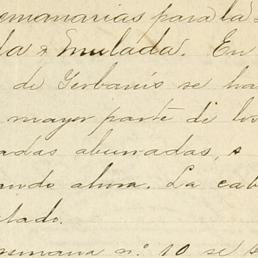 semanarias para la
da & Emulada. En
de Gerbanis se ha
mayor parte de los
adas aburradas, s
ando ahora. La cab
lado.
semana n.º 10 se s